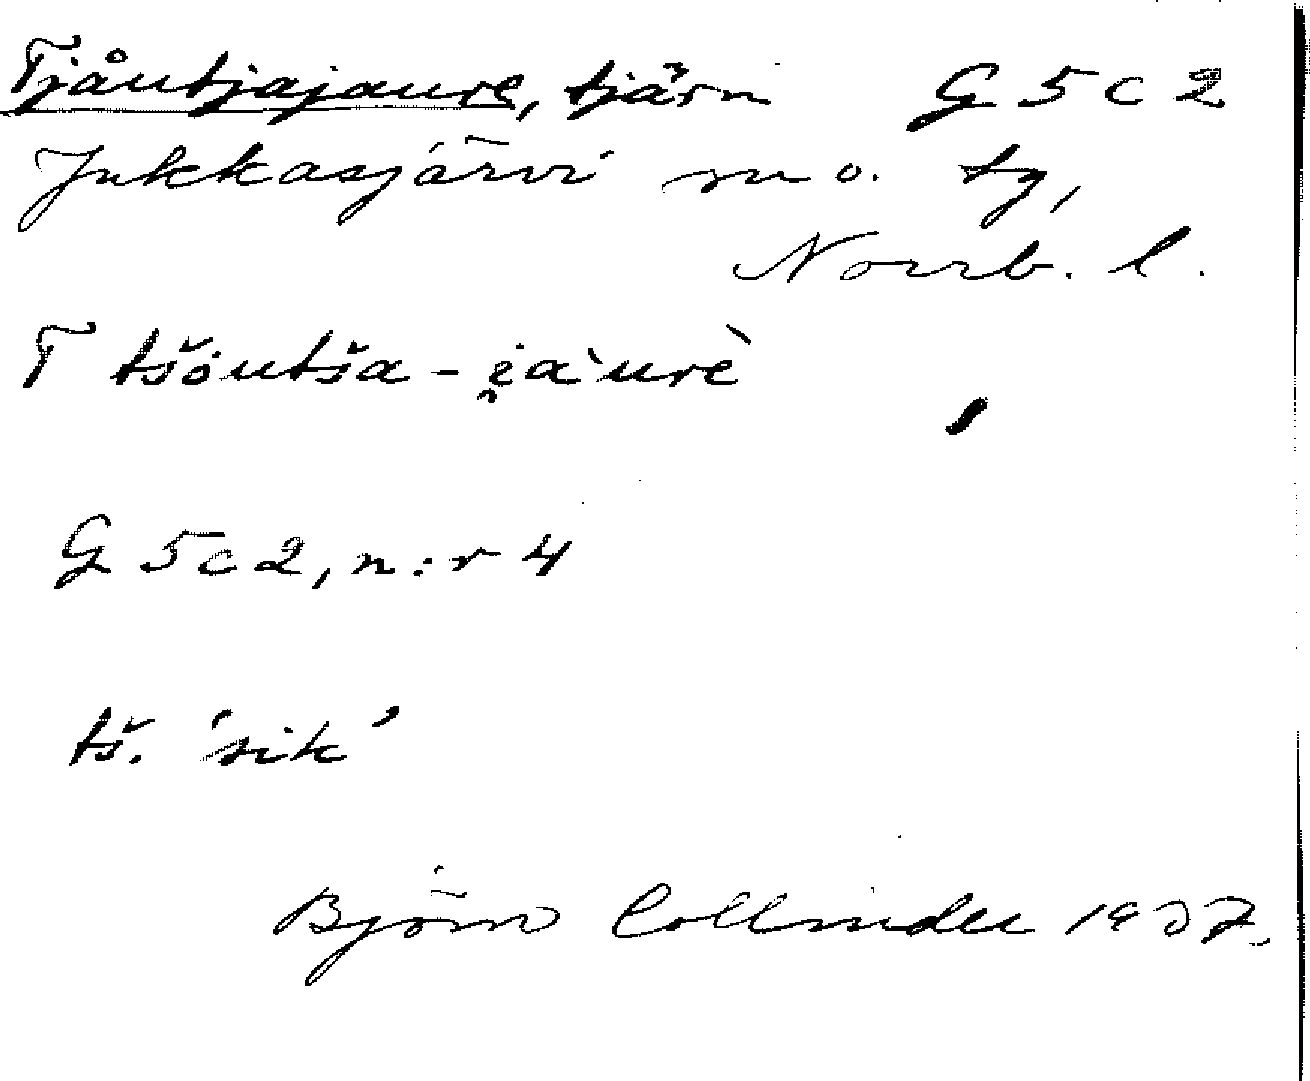 Tjåutjajaure, tjärn G 5 c 2
Jukkasjärvi sn o. tg,
Norrb. l.
T tšȯutša - i̯a`urè
G 5 c 2, n:r 4
tš. 'sik'
Björn Collinder 1937.